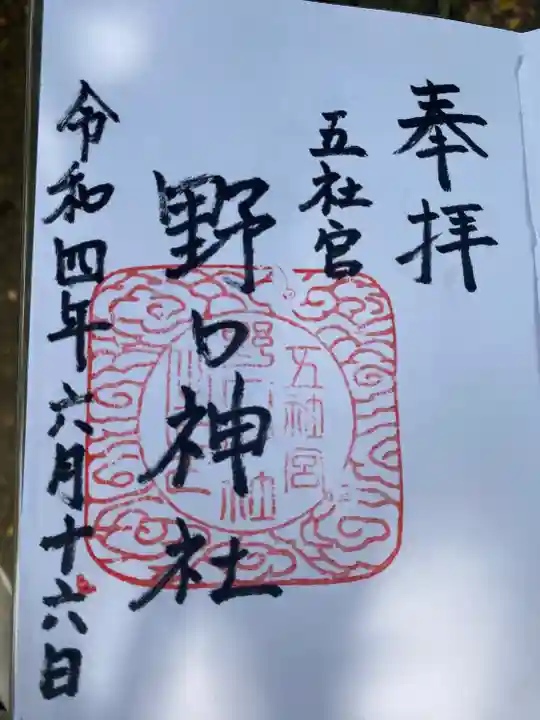 奉拝
五社宮
野口神社
令和四年六月十六日
五社宮